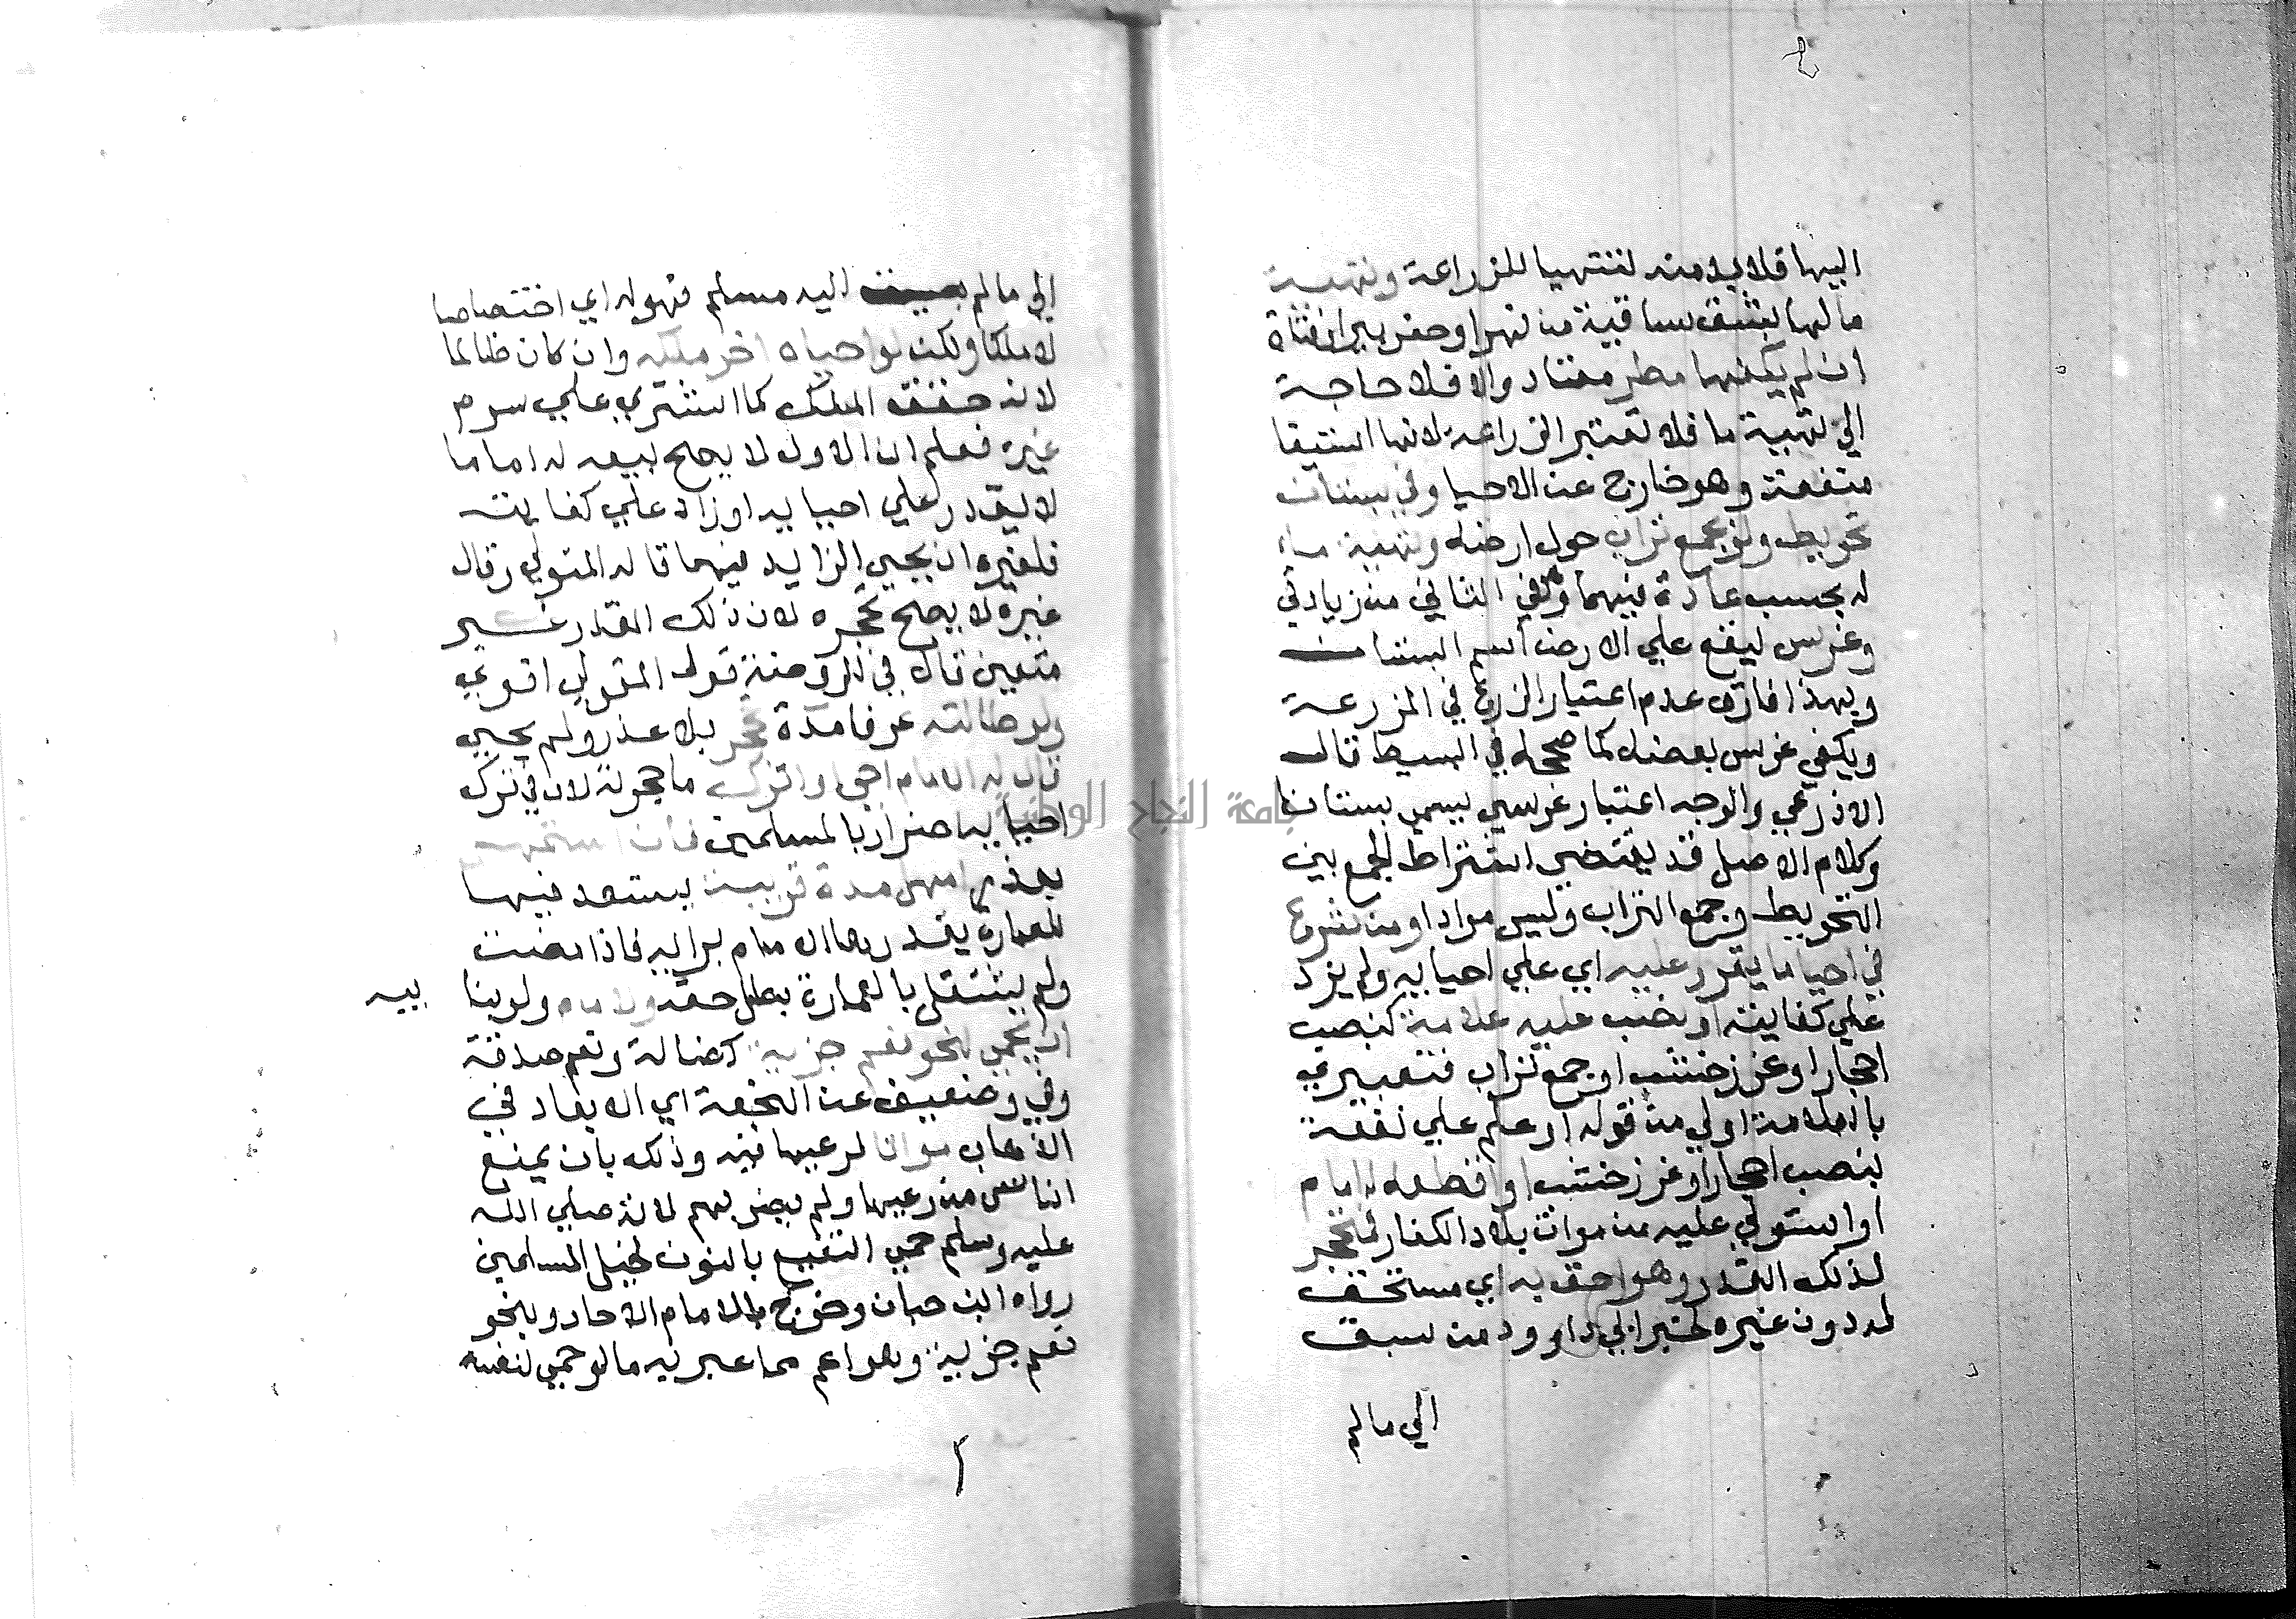 اليها فلا بد منه لتتهيا للزراعة وتهية
ما لها بشق ساقية من نهر او حفر بير او قناة
ان لم يكفها مطر معتاد والا فلا حاجة
الي تهية ما فلا تعتبر الزراعة لانها استيفا
منفعة وهو خارج عن الاحيا وفي بستان
تحويط ولو بجمع تراب حول ارضه وتهية ماء
له بحسب عادة فيهما وفي الثاني من زيادتي
وغرس ليقع علي الارض اسم البستان
وبهذا فارق عدم اعتبار الزرع في المزرعة
ويكفي غرس بعضه كما صححه في البسيط قال
الاذرعي والوجه اعتبار غرس يسمي بستانا
وكلام الاصل قد يقتضي اشتراط الجمع بين
التحويط وجمع التراب وليس مرادا ومن شرع
في احيا ما يقدر عليه اي علي احيايه ولم يزد
علي كفايته او نصب عليه علامة كنصب
احجار او غرز خشب او جمع تراب فتعبيري
بالعلامة اولي من قوله او علم علي بقعة
بنصب احجار او غرز خشب او اقطعه امام
او استولي عليه من موات بلاد الكفار فمتحجر
لذلك القدر وهو احق به اي مستحق
له دون غيره لخبر ابي داوود من سبق
الي مالم
الي ما لم يسبق اليه مسلم فهو له اي اختصاصا
لا ملكا ولكن لو احياه اخر ملكه وان كان ظالما
لانه حقق الملك كما اشتري علي سوم
غيره فعلم ان الاول لا يصح بيعه له اما ما
لا يقدر علي احيايه او زاد علي كفايته
فلغيره ان يحيي الزايد فيهما قاله المتولي وقال
غيره لا يصح تحجره لان ذلك القدر غير
متعين قال في الروضة قول المتولي اقوي
ولو طالت عرفا مدة تحجر بلا عذر ولم يحيي
قال له الامام احي او اترك ما حجرته لان في ترك
احيايه اضرارا بالمسلمين فان استمهل
بعذر امهل مدة قريبة يستعد فيها
للعمارة يقدرها الامام برايه فاذا مضت
ولم يشتغل بالعمارة بطل حقه ولامام ولو بنا
يبه
ان يحمي لنحو نعم جزية كضالة ونعم صدقة
وفي وضعيف عن النجعة اي الابعاد في
الذهاب مواتا لرعيها فيه وذلك بان يمنع
الناس من رعيها ولم يضر بهم لانه صلي الله
عليه وسلم حمي النقيع بالنون لخيل المسلمين
رواه ابن حبان وخرج بالامام الاحاد وبنحو
نعم جزية وهو اعم مما عبر به ما لو حمي لنفسه
جامعة النجاح الوطنية